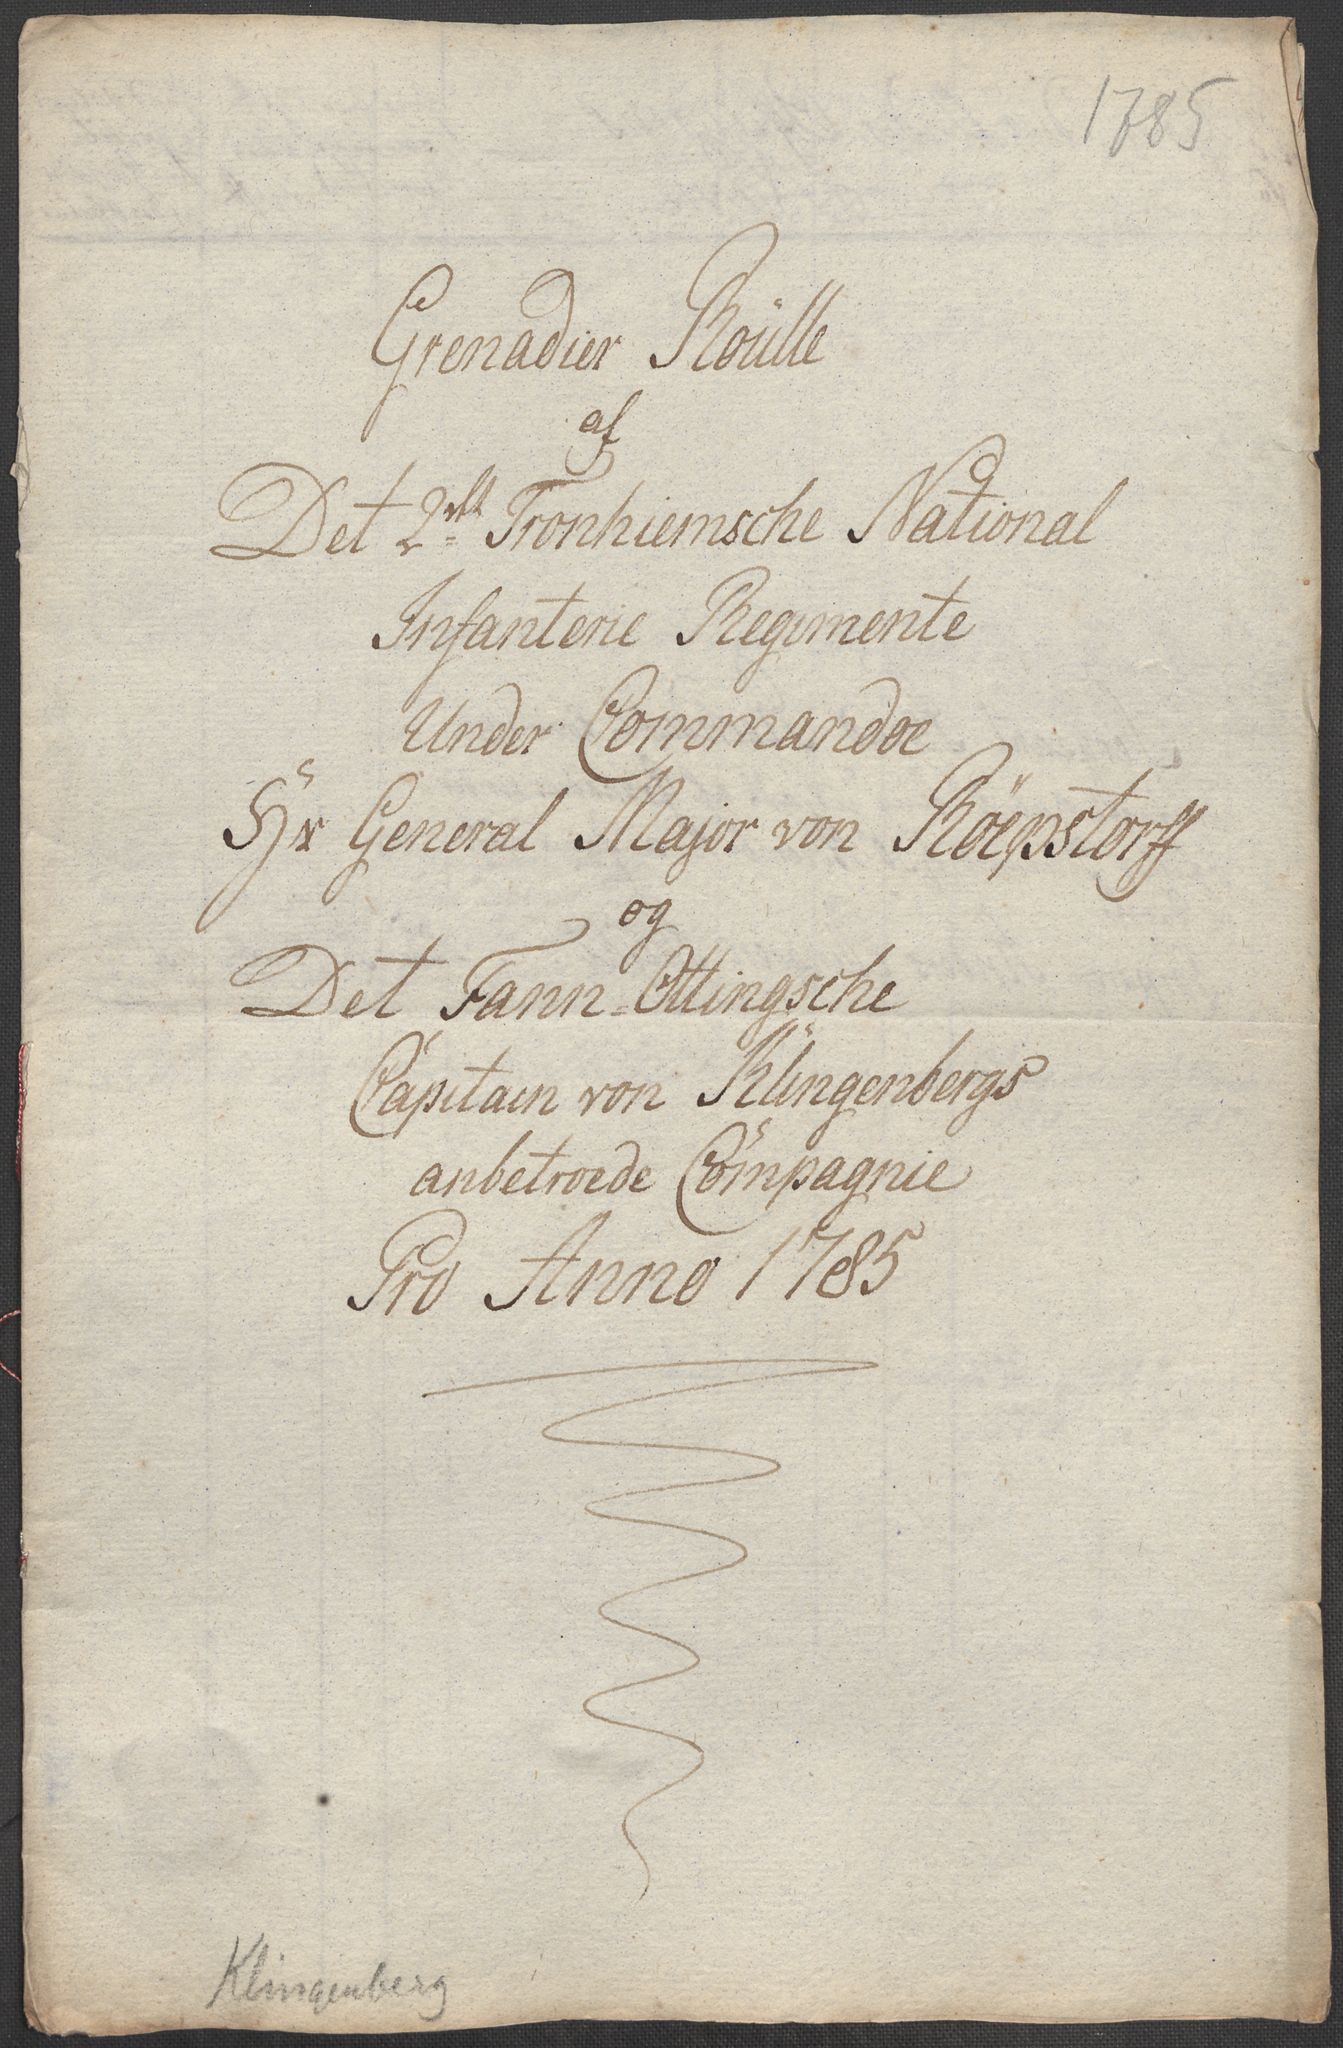 1785
Grenadier Roülle
af
Det 2det Tronhiemsche National
Infanterie Regimente
Under Commandoe
Hr General Major von Röepstorff
og
Det Fann-Ottingsche
Capitain von Klingenbergs
anbetroede Compagnie
Pro Anno 1785
Klingenberg